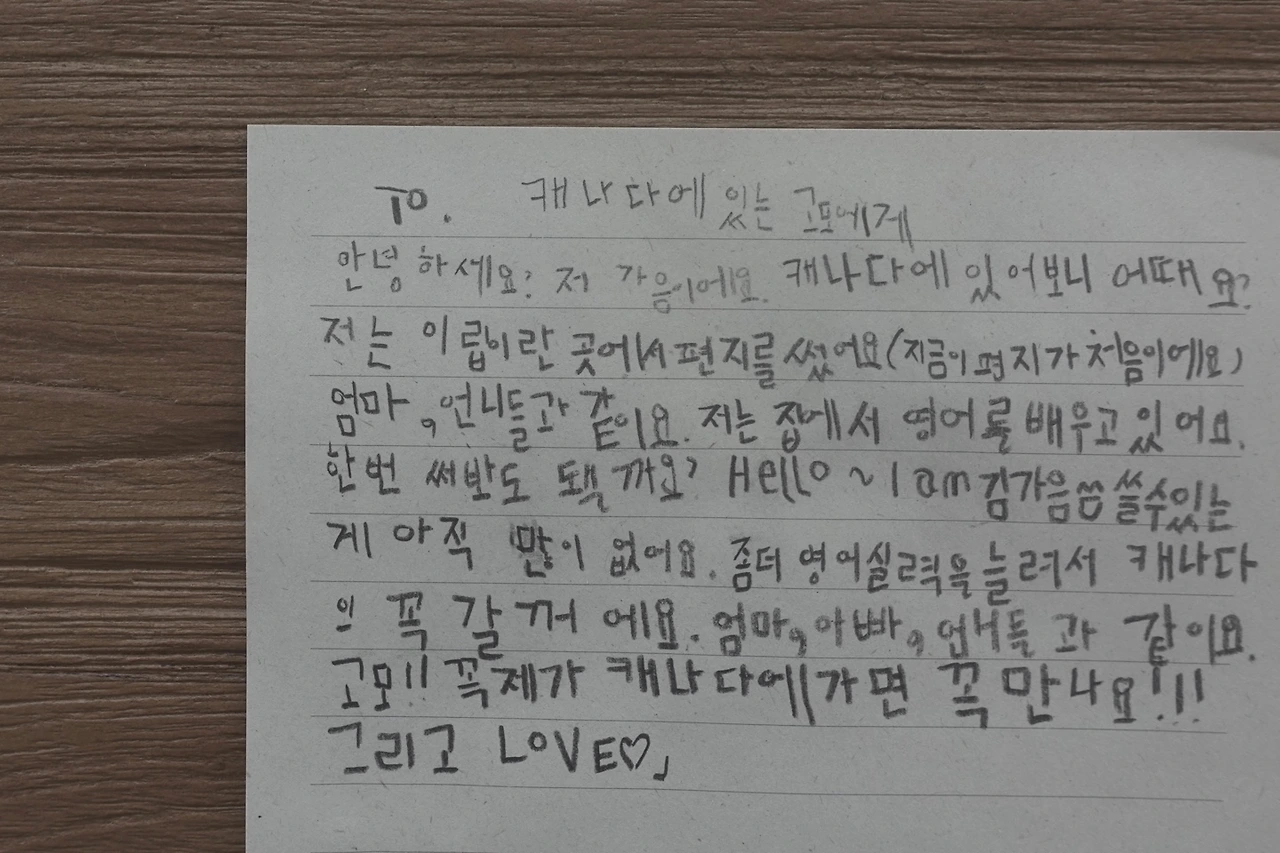 To. 캐나다에 있는 고모에게
안녕하세요? 저 가음이에요. 캐나다에 있어보니 어때요?
저는 이룹이란 곳에서 편지를 썼어요(지금이 편지가 처음이에요)
엄마, 언니들과 같이요. 저는 집에서 영어를 배우고 있어요.
한번 써봐도 될까요? Hello ~ I am 김가음 씀 쓸수있는
게 아직 많이 없어요. 좀더 영어실력을 늘려서 캐나다
의 꼭 갈꺼에요. 엄마, 아빠, 언니들과 같이요.
고모!! 꼭 제가 캐나다에 가면 꼭 만나요!!!
그리고 LOVE♡」